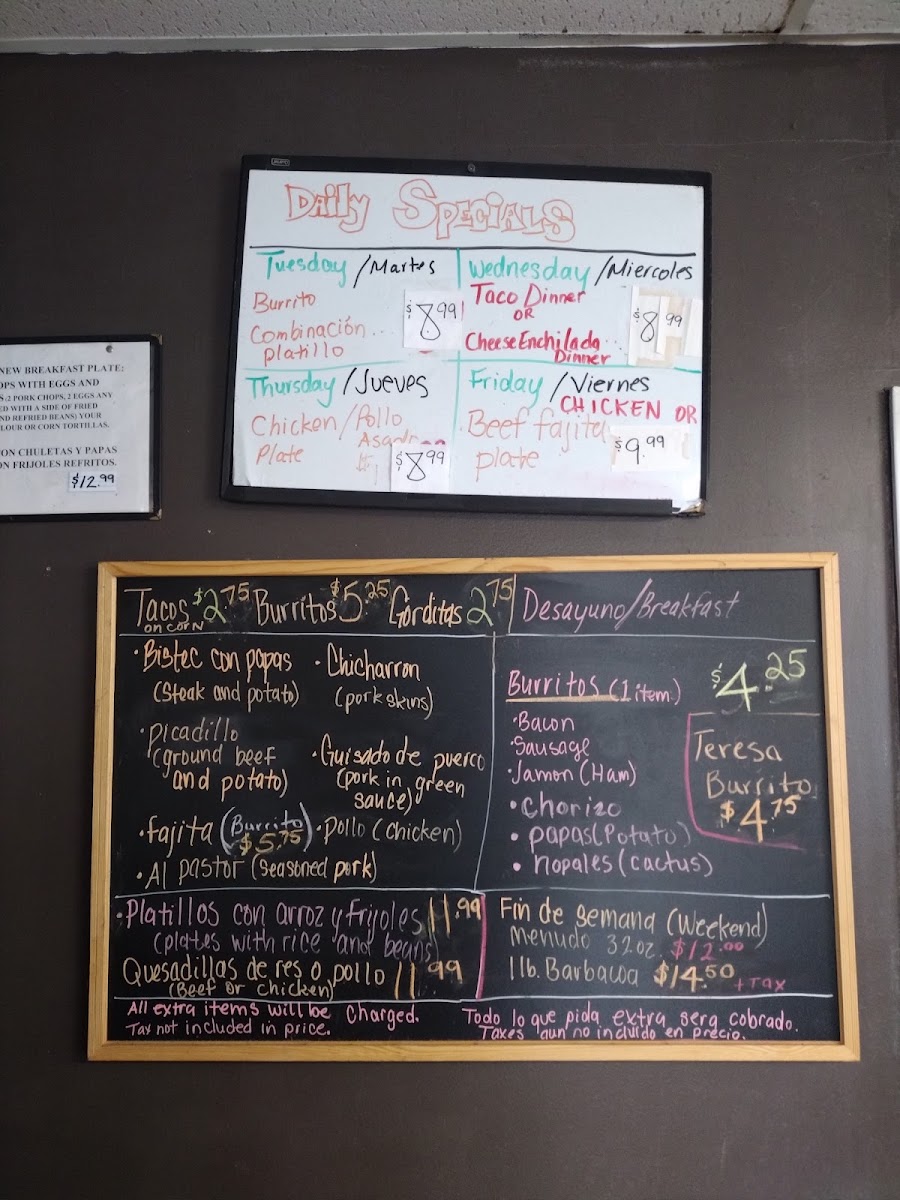 Daily Specials
Tuesday/Martes
Burrito
Combinación...
platillo
$8.99
Wednesday/Miercoles
Taco Dinner
OR
Cheese Enchilada...
Dinner
$8.99
Thursday/Jueves
Chicken/Pollo
Asado
Plate
$8.99
Friday/Viernes
CHICKEN OR
Beef fajita
plate
$9.99
NEW BREAKFAST PLATE:
OPS WITH EGGS AND
S:2 PORK CHOPS, 2 EGGS ANY
ED WITH A SIDE OF FRIED
ND REFRIED BEANS) YOUR
LOUR OR CORN TORTILLAS.
ON CHULETAS Y PAPAS
ON FRIJOLES REFRITOS.
$12.99
Tacos $2.75 Burritos $5.25 Gorditas 2.75
on corn
•Bistec con papas
(Steak and potato)
•Picadillo
(ground beef
and potato)
•fajita (Burrito $5.75)
•Al pastor (seasoned pork)
•Chicharron
(pork skins)
•Guisado de puerco
(pork in green
sauce)
•pollo (chicken)
Desayuno/Breakfast
Burritos (1 item) $4.25
•Bacon
•Sausage
•Jamon (Ham)
•Chorizo
•papas (Potato)
•nopales (cactus)
Teresa
Burrito
$4.75
•Platillos con arroz y frijoles 11.99
(plates with rice and beans)
Quesadillas de res o pollo 11.99
(Beef or chicken)
Fin de semana (Weekend)
menudo 32oz. $12.00
1 lb. Barbacoa $14.50 + Tax
All extra items will be charged.
Tax not included in price.
Todo lo que pida extra sera cobrado.
Taxes aun no incluido en precio.